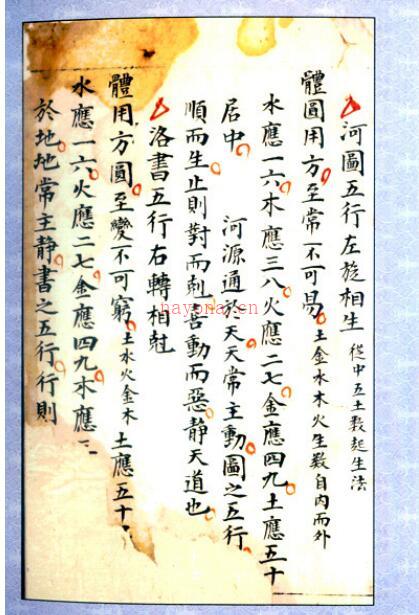 河圖五行左旋相生 從中五土數起生法
體圓用方至常不可易 土金水木火生數自內而外
水應一六木應三八火應二七金應四九土應五十
居中 河源通於天天常主動圖之五行
順而生止則對而剋 動而惡靜天道也
洛書五行右轉相尅
體用方圓至變不可窮 土水火金木 土應五十
水應一六火應二七金應四九木應
於地地常主靜書之五行行則
nayona.cn